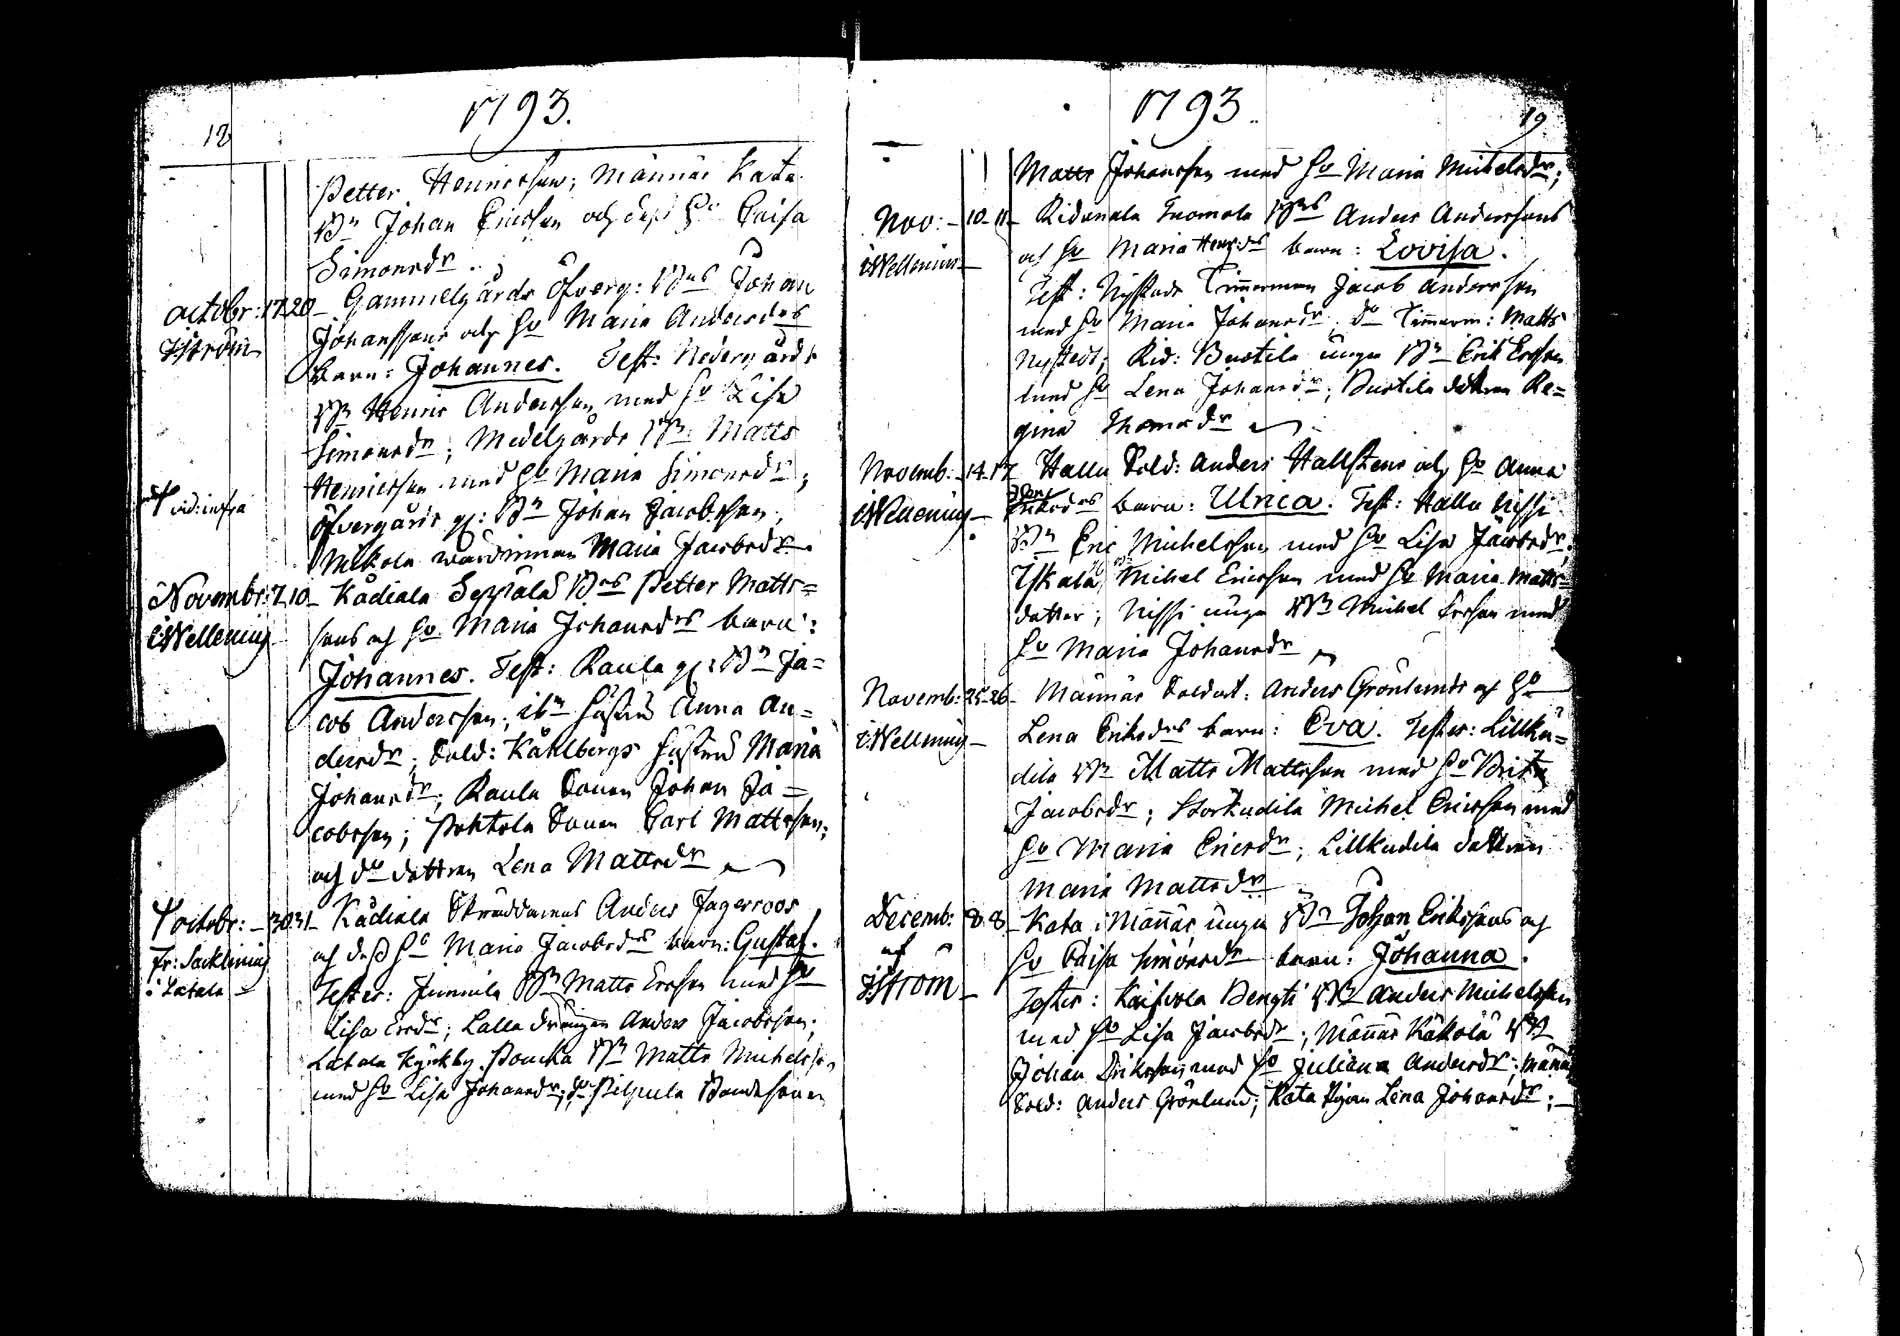 1793.
18
Petter Henricsson; Männäs Kata
Bn Johan Ericsson och dess Hu Caisa
Simonsdr.
octobr: 17 20 Gammelgårds öfverg: Bns Johan
Ziström Johanssons och Hu Maria Andersdrs
barn: Johannes. Test: Nedergårds
Bn Henric Andersson med Hu Lisa
Simonsdr; Medelgårds Bn Matts
Henricsson med Hu Maria Simonsdr;
† vid: infra öfvergårds gl: Bn Johan Jacobsson;
Mikola wärdinnan Maria Jacobsdr.
Novembr: 7 10 Kådiala Seppälä Bns Petter Matts=
C: Wellenius sons och Hu Maria Johansdrs barn:
Johannes. Test: Raula gl: Bn Ja=
cob Andersson; ibm hustru Anna An=
dersdr; Sold: Kåhlbergs hustru Maria
Johansdr; Raula Sonen Johan Ja=
cobsson; Pohtola Sonen Carl Mattsson;
och do dottren Lena Mattsdr
† octobr: 30 31 Kådiala Skräddarens Anders Jagerroos
fr: Sacklinius och dess Hu Maria Jacobsdrs barn: Gustaf.
i Letala Tester: Junnila Bn Matts Ersson med Hu
Lisa Ersdr; Lalla drängen Anders Jacobsson;
Letala Kyrkby Poucka Bn Matts Michelsson
med Hu Lisa Johansdr; do Pilpula Bondesonen
1793
19
Matts Johansson med Hu Maria Michelsdr;
Nov: 10 11 Ridenala Tuomola Bns Anders Anderssons
C: Wellenius och Hu Maria Henrsdrs barn: Lovisa.
Test: Nystads Timmerman Jacob Andersson
med Hu Maria Johansdr; do Timmerm: Matts
Nystedt; Rid: Buotila unga Bn Erik Ersson
med Hu Lena Johansdr; Buotila dottren Re=
gina Thomasdr
Novemb: 14 17 Hallu Sold: Anders Hallstens och Hu Anna
C: Wellenius barn: Ulrica. Test: Hallu Nissi
Bn Eric Michelsson med Hu Lisa Jacobsdr;
Yskala Michel Ericsson med Hu Maria Matts=
dotter; Nissi unga Bn Michel Ersson med
Hu Maria Johansdr
Novemb: 25 26 Männäs Soldat: Anders Grönlunds och Hu
C: Wellenius Lena Eriksdrs barn: Eva. Tester: Lillku=
dila Bn Matts Mattsson med Hu Brita
Jacobsdr; Storkudila Michel Ericsson med
Hu Maria Ericsdr; Lillkudila dottren
Maria Mattsdr
Decemb: 8 8 Kata Männäs unga Bn Johan Erikssons och
af Hu Caisa Simonsdr barn: Johanna.
Ziström Tester: Kaisvola Bengts Bn Anders Michelsson
med Hu Lisa Jacobsdr; Männäs Käkölä Bn
Johan Eriksson med Hu Juliana Andersdr; Männäs
Sold: Anders Grönlund; Kata Pigan Lena Johansdr;